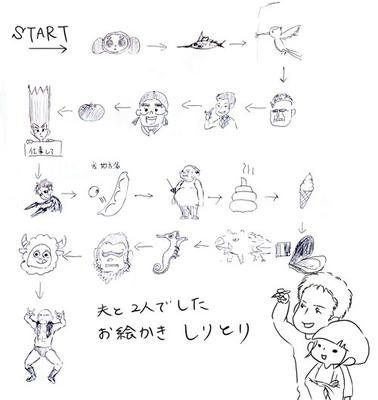 START
仕事して
夫と2人でした
お絵かき しりとり